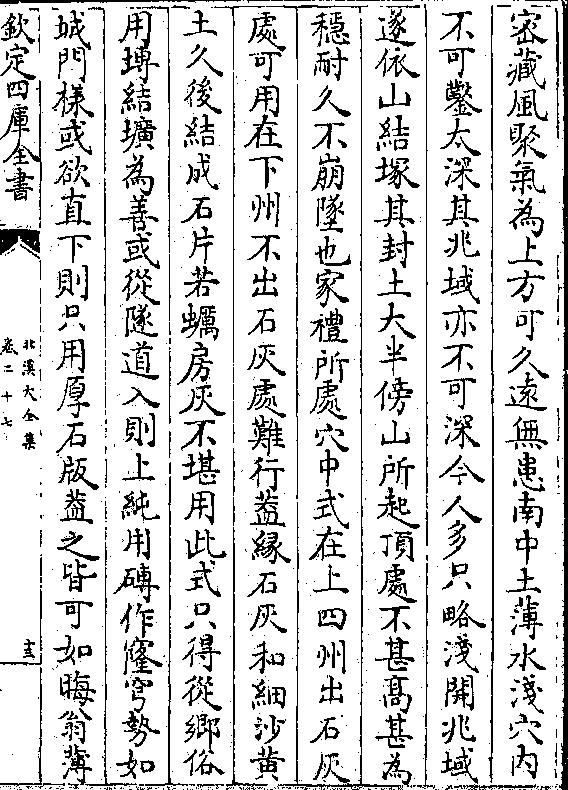 宻藏風聚氣為上方可久遠無患南中土薄水淺穴内
不可鑿太深其兆域亦不可深今人多只略淺開兆域
遂依山結塚其封土大半傍山所起頂處不甚髙甚為
穩耐久不崩墜也家禮所處穴中式在上四州出石灰
處可用在下州不出石灰處難行葢緣石灰和細沙黄
土久後結成石片若蠣房灰不堪用此式只得從鄉俗
用塼結壙為善或從隧道入則上純用磚作窿穹勢如
城門樣或欲直下則只用厚石版葢之皆可如晦翁薄
欽定四庫全書
北溪大全集
卷二十七
十三